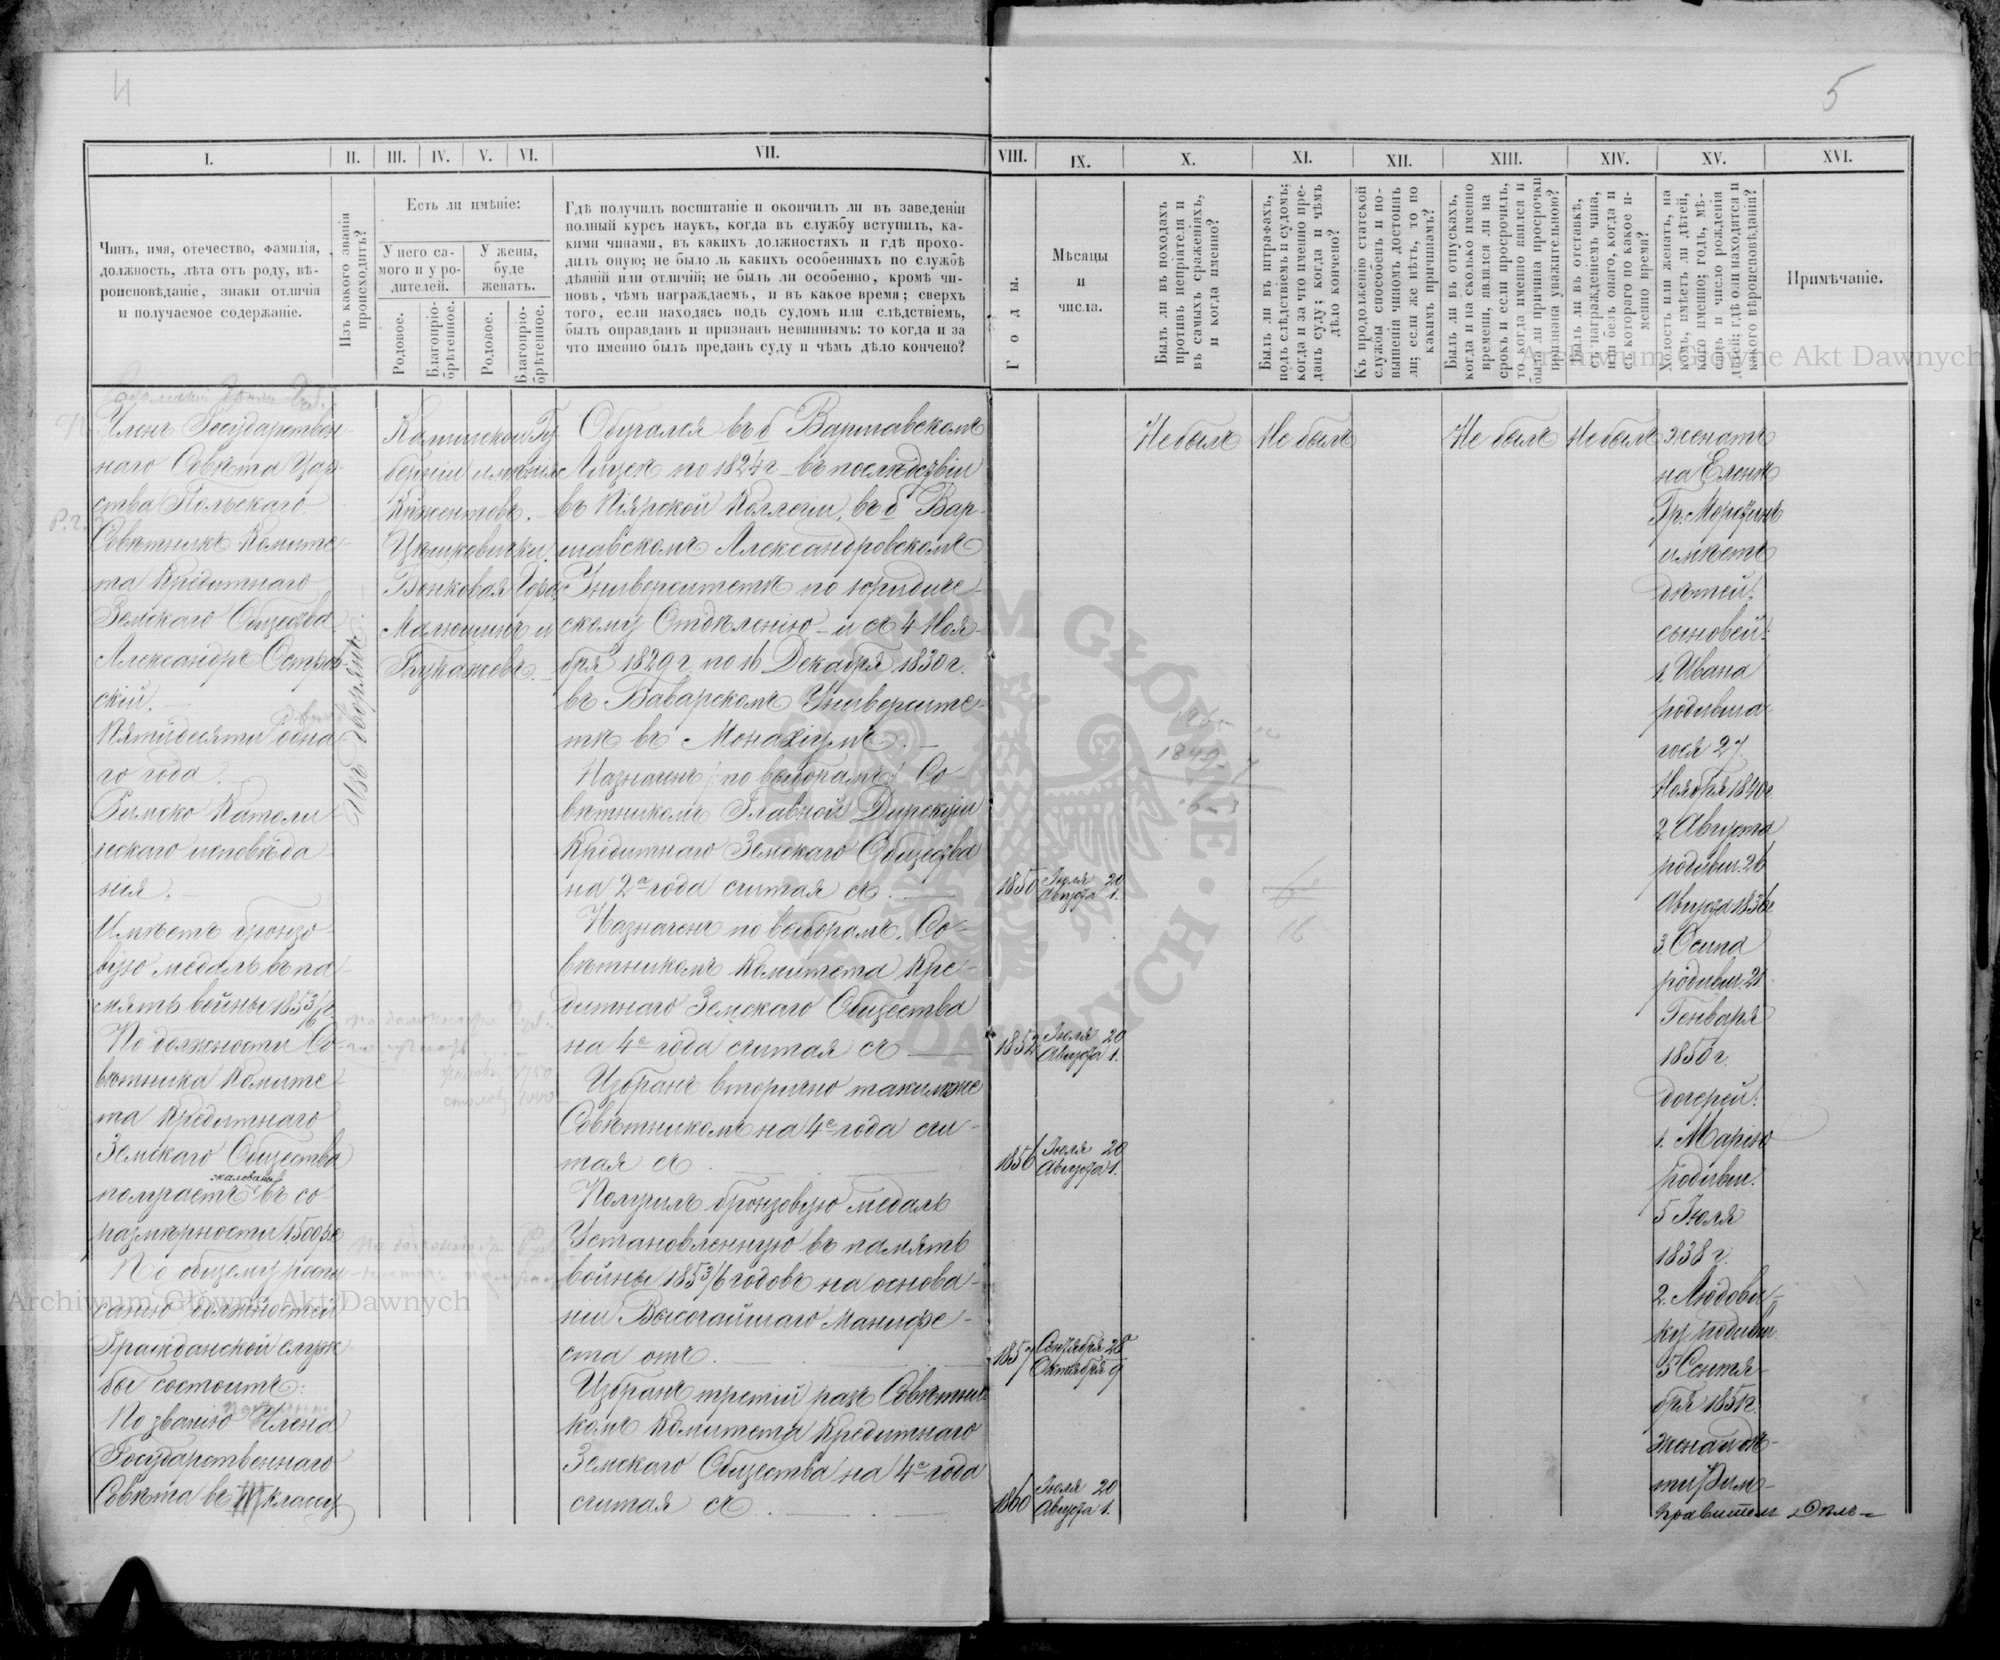 4
5
I.
II.
III.
IV.
V.
VI.
VII.
VIII.
IX.
X.
XI.
XII.
XIII.
XIV.
XV.
XVI.
Чинъ, имя, отечество, фамилія,
должность, лѣта отъ роду, вѣ-
роисповѣданіе, знаки отличія
и получаемое содержаніе.
Изъ какого званія
происходитъ?
Есть ли имѣніе:
У него са-
мого и у ро-
дителей.
У жены,
буде
женатъ.
Родовое.
Благопріо-
брѣтенное.
Родовое.
Благопріо-
брѣтенное.
Гдѣ получилъ воспитаніе и окончилъ ли въ заведеніи
полный курсъ наукъ, когда въ службу вступилъ, ка-
кими чинами, въ какихъ должностяхъ и гдѣ прохо-
дилъ оную; не было ль какихъ особенныхъ по службѣ
дѣяній или отличій; не былъ ли особенно, кромѣ чи-
новъ, чѣмъ награждаемъ, и въ какое время; сверхъ
того, если находясь подъ судомъ или слѣдствіемъ,
былъ оправданъ и признанъ невиннымъ: то когда и за
что именно былъ преданъ суду и чѣмъ дѣло кончено?
Годы.
Мѣсяцы
и
числа.
Былъ ли въ походахъ
противъ непріятеля и
въ самыхъ сраженіяхъ,
и когда именно?
Былъ ли въ штрафахъ,
подъ слѣдствіемъ и судомъ;
когда и за что именно пре-
данъ суду; когда и чѣмъ
дѣло кончено?
Къ продолженію статской
службы способенъ и по-
вышенія чиномъ достоинъ
ли; если же нѣтъ, то по
какимъ причинамъ?
Былъ ли въ отпускахъ,
когда и на сколько именно
времени, явился ли на
срокъ и если просрочилъ,
то когда именно явился и
была ли причина просрочки
признана уважительною?
Былъ ли въ отставкѣ,
съ награжденіемъ чина,
или безъ онаго, когда и
съ котораго по какое и-
менно время?
Холостъ или женатъ, на
комъ, имѣетъ ли дѣтей,
кого именно; годъ, мѣ-
сяцъ и число рожденія
дѣтей; гдѣ они находятся и
какого вѣроисповѣданія?
Примѣчаніе.
Членъ Государствен-
наго Совѣта Цар-
ства Польскаго
Совѣтникъ Комите-
та Кредитнаго
Земскаго Общества
Александръ Остров-
скій.
Пятидесяти одна-
го года.
Римско Католи-
ческаго исповѣда-
нія.
Имѣетъ бронзо-
вую медаль въ па-
мять войны 1853/6 г.
По должности Со-
вѣтника Комите-
та Кредитнаго
Земскаго Общества
получаетъ жалованья въ со-
размѣрности 1500 р.с
По общему роспи-
санію должностей
Гражданской служ-
бы состоитъ:
По званію Члена
Государственнаго
Совѣта въ классу
Изъ дворянъ.
Калишской Гу-
берніи имѣніе
Малюшинъ и
Обучался въ б. Варшавскомъ
Лицеѣ по 1824 г. въ послѣдствіи
въ Піярской Коллегіи, въ б. Вар-
шавскомъ Александровскомъ
Университетѣ по юридиче-
скому Отдѣленію и съ 4 Ноя-
бря 1829 г. по 16 Декабря 1830 г.
въ Баварскомъ Университе-
тѣ въ Монахіумѣ.
Назначенъ по выборамъ Со-
вѣтникомъ Главной Дирекціи
Кредитнаго Земскаго Общества
на 2а года считая съ
Назначенъ по выборамъ Со-
вѣтникомъ Комитета Кре-
дитнаго Земскаго Общества
на 4е года считая съ
Избранъ вторично таким же
Совѣтникомъ на 4е года счи-
тая съ
Получилъ бронзовую медаль
Установленную въ память
войны 1853/6 годовъ на основа-
ніи Высочайшаго Манифе-
ста отъ
Избранъ третій разъ Совѣтни-
комъ Комитета Кредитнаго
Земскаго Общества на 4е года
считая съ
1850 Іюля 20
Августа 1.
1852 Іюля 20
Августа 1.
1856 Іюля 20
Августа 1.
1857 Сентября 28
Октября 9
1860 Іюля 20
Августа 1.
1849
Не былъ
Не былъ
Не былъ
Не былъ
женатъ
на Еленѣ
имѣетъ
дѣтей:
сыновей:
1. Ивана
родивша-
гося 27
Ноября 1840 г
2 Августа
родивш. 26
Августа 1836 г
3 Осипа
родивш. 21
Генваря
1850 г.
дочерей:
1. Марію
родивш.
5 Іюля
1838 г.
2. Людови-
ку родивш.
5 Сентя-
бря 1851 г.
жена и дѣ-
ти Рим-
Правитель Дѣлъ
Archiwum Główne Akt Dawnych
Archiwum Główne Akt Dawnych
ARCHIWUM GŁÓWNE AKT DAWNYCH